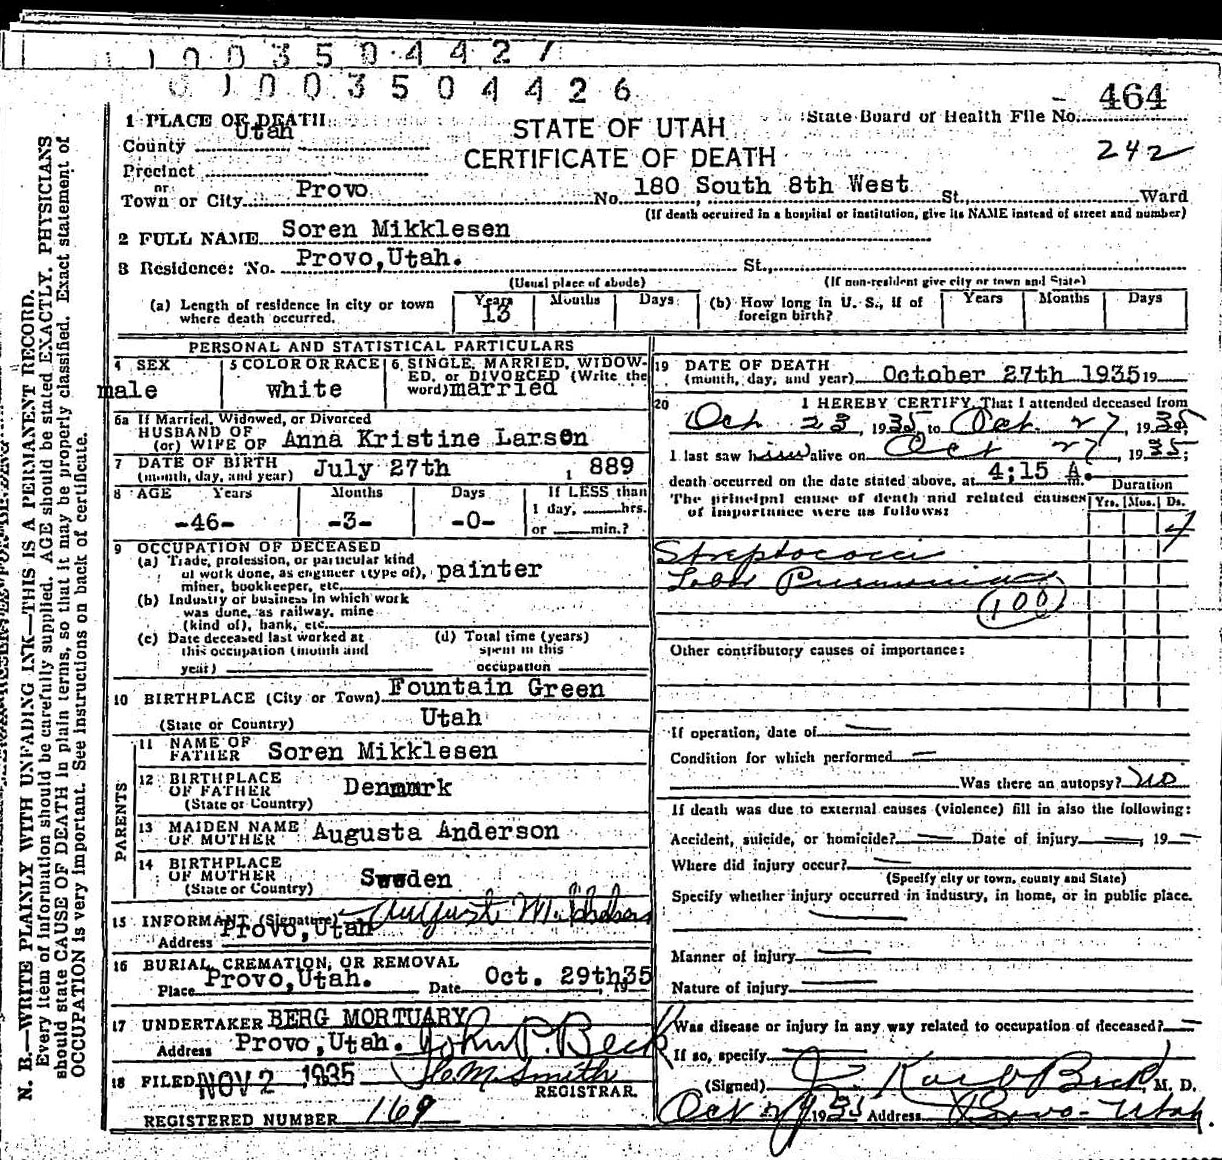 1 0 0 3 5 0 4 4 2 7
0 1 0 0 3 5 0 4 4 2 6
464
1 PLACE OF DEATH
State Board of Health File No.
Utah
STATE OF UTAH
County
242
CERTIFICATE OF DEATH
Precinct
or
Town or City Provo No. 180 South 8th West St., Ward
(If death occurred in a hospital or institution, give its NAME instead of street and number)
2 FULL NAME Soren Mikklesen
3 Residence: No. Provo,Utah. St.,
(Usual place of abode) (If non-resident give city or town and State)
(a) Length of residence in city or town where death occurred. Years 13 Months Days (b) How long in U. S., if of foreign birth? Years Months Days
PERSONAL AND STATISTICAL PARTICULARS
4 SEX male
5 COLOR OR RACE white
6 SINGLE, MARRIED, WIDOW-
ED, or DIVORCED (Write the
word) married
6a If Married, Widowed, or Divorced
HUSBAND OF
(or) WIFE OF Anna Kristine Larsen
7 DATE OF BIRTH
(month, day, and year) July 27th 1 889
8 AGE Years Months Days If LESS than
1 day, hrs.
-46- -3- -0- or min.?
9 OCCUPATION OF DECEASED
(a) Trade, profession, or particular kind
of work done, as engineer (type of), painter
miner, bookkeeper, etc.
(b) Industry or business in which work
was done, as railway, mine
(kind of), bank, etc.
(c) Date deceased last worked at
this occupation (month and
year)
(d) Total time (years)
spent in this
occupation
10 BIRTHPLACE (City or Town) Fountain Green
(State or Country) Utah
PARENTS
11 NAME OF
FATHER Soren Mikklesen
12 BIRTHPLACE
OF FATHER Denmark
(State or Country)
13 MAIDEN NAME
OF MOTHER Augusta Anderson
14 BIRTHPLACE
OF MOTHER Sweden
(State or Country)
15 INFORMANT (Signature) August
Address Provo,Utah
16 BURIAL, CREMATION, OR REMOVAL
Place Provo,Utah. Date Oct. 29th, 1935
17 UNDERTAKER BERG MORTUARY
Address Provo,Utah. John P. Beck
18 FILED NOV 2 1935 Smith
REGISTRAR.
REGISTERED NUMBER 169
19 DATE OF DEATH
(month, day, and year) October 27th 1935 19
20 I HEREBY CERTIFY, That I attended deceased from
Oct 23, 1935, to Oct. 27, 1935.
I last saw him alive on Oct 27, 1935;
death occurred on the date stated above, at 4;15 A. m.
The principal cause of death and related causes
of importance were as follows:
Duration
Yrs. Mos. Ds.
4
Streptococci
Lobar Pneumonia
100
Other contributory causes of importance:
If operation, date of
Condition for which performed
Was there an autopsy? no
If death was due to external causes (violence) fill in also the following:
Accident, suicide, or homicide? Date of injury 19
Where did injury occur?
(Specify city or town, county and State)
Specify whether injury occurred in industry, in home, or in public place.
Manner of injury
Nature of injury
Was disease or injury in any way related to occupation of deceased?
If so, specify
(Signed) J. Karl Beck, M. D.
Oct 29 1935 Address Provo-Utah.
N. B.—WRITE PLAINLY WITH UNFADING INK—THIS IS A PERMANENT RECORD.
Every item of information should be carefully supplied. AGE should be stated EXACTLY. PHYSICIANS
should state CAUSE OF DEATH in plain terms, so that it may be properly classified. Exact statement of
OCCUPATION is very important. See instructions on back of certificate.